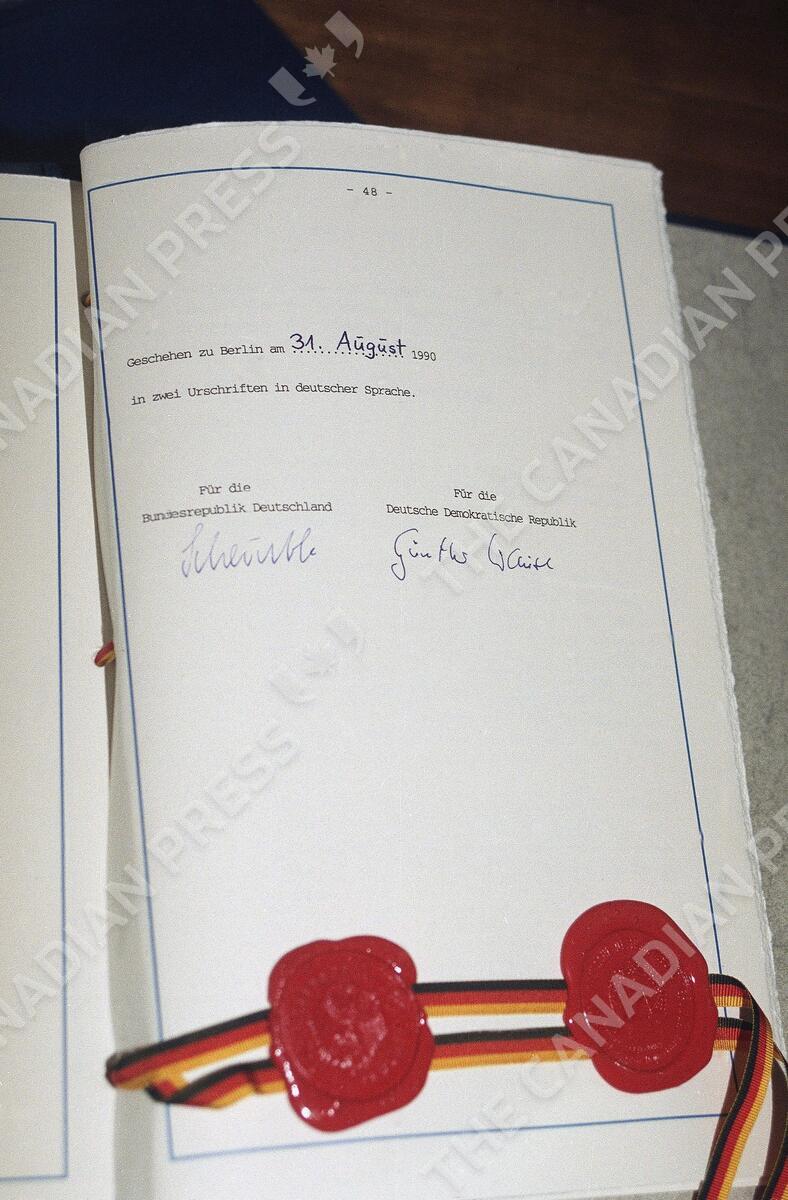 - 48 -
Geschehen zu Berlin am 31. August 1990
in zwei Urschriften in deutscher Sprache.
Für die
Bundesrepublik Deutschland
Für die
Deutsche Demokratische Republik
Schäuble
Günther Krause
THE CANADIAN PRESS
THE CANADIAN PRESS
THE CANADIAN PRESS
THE CANADIAN PRESS